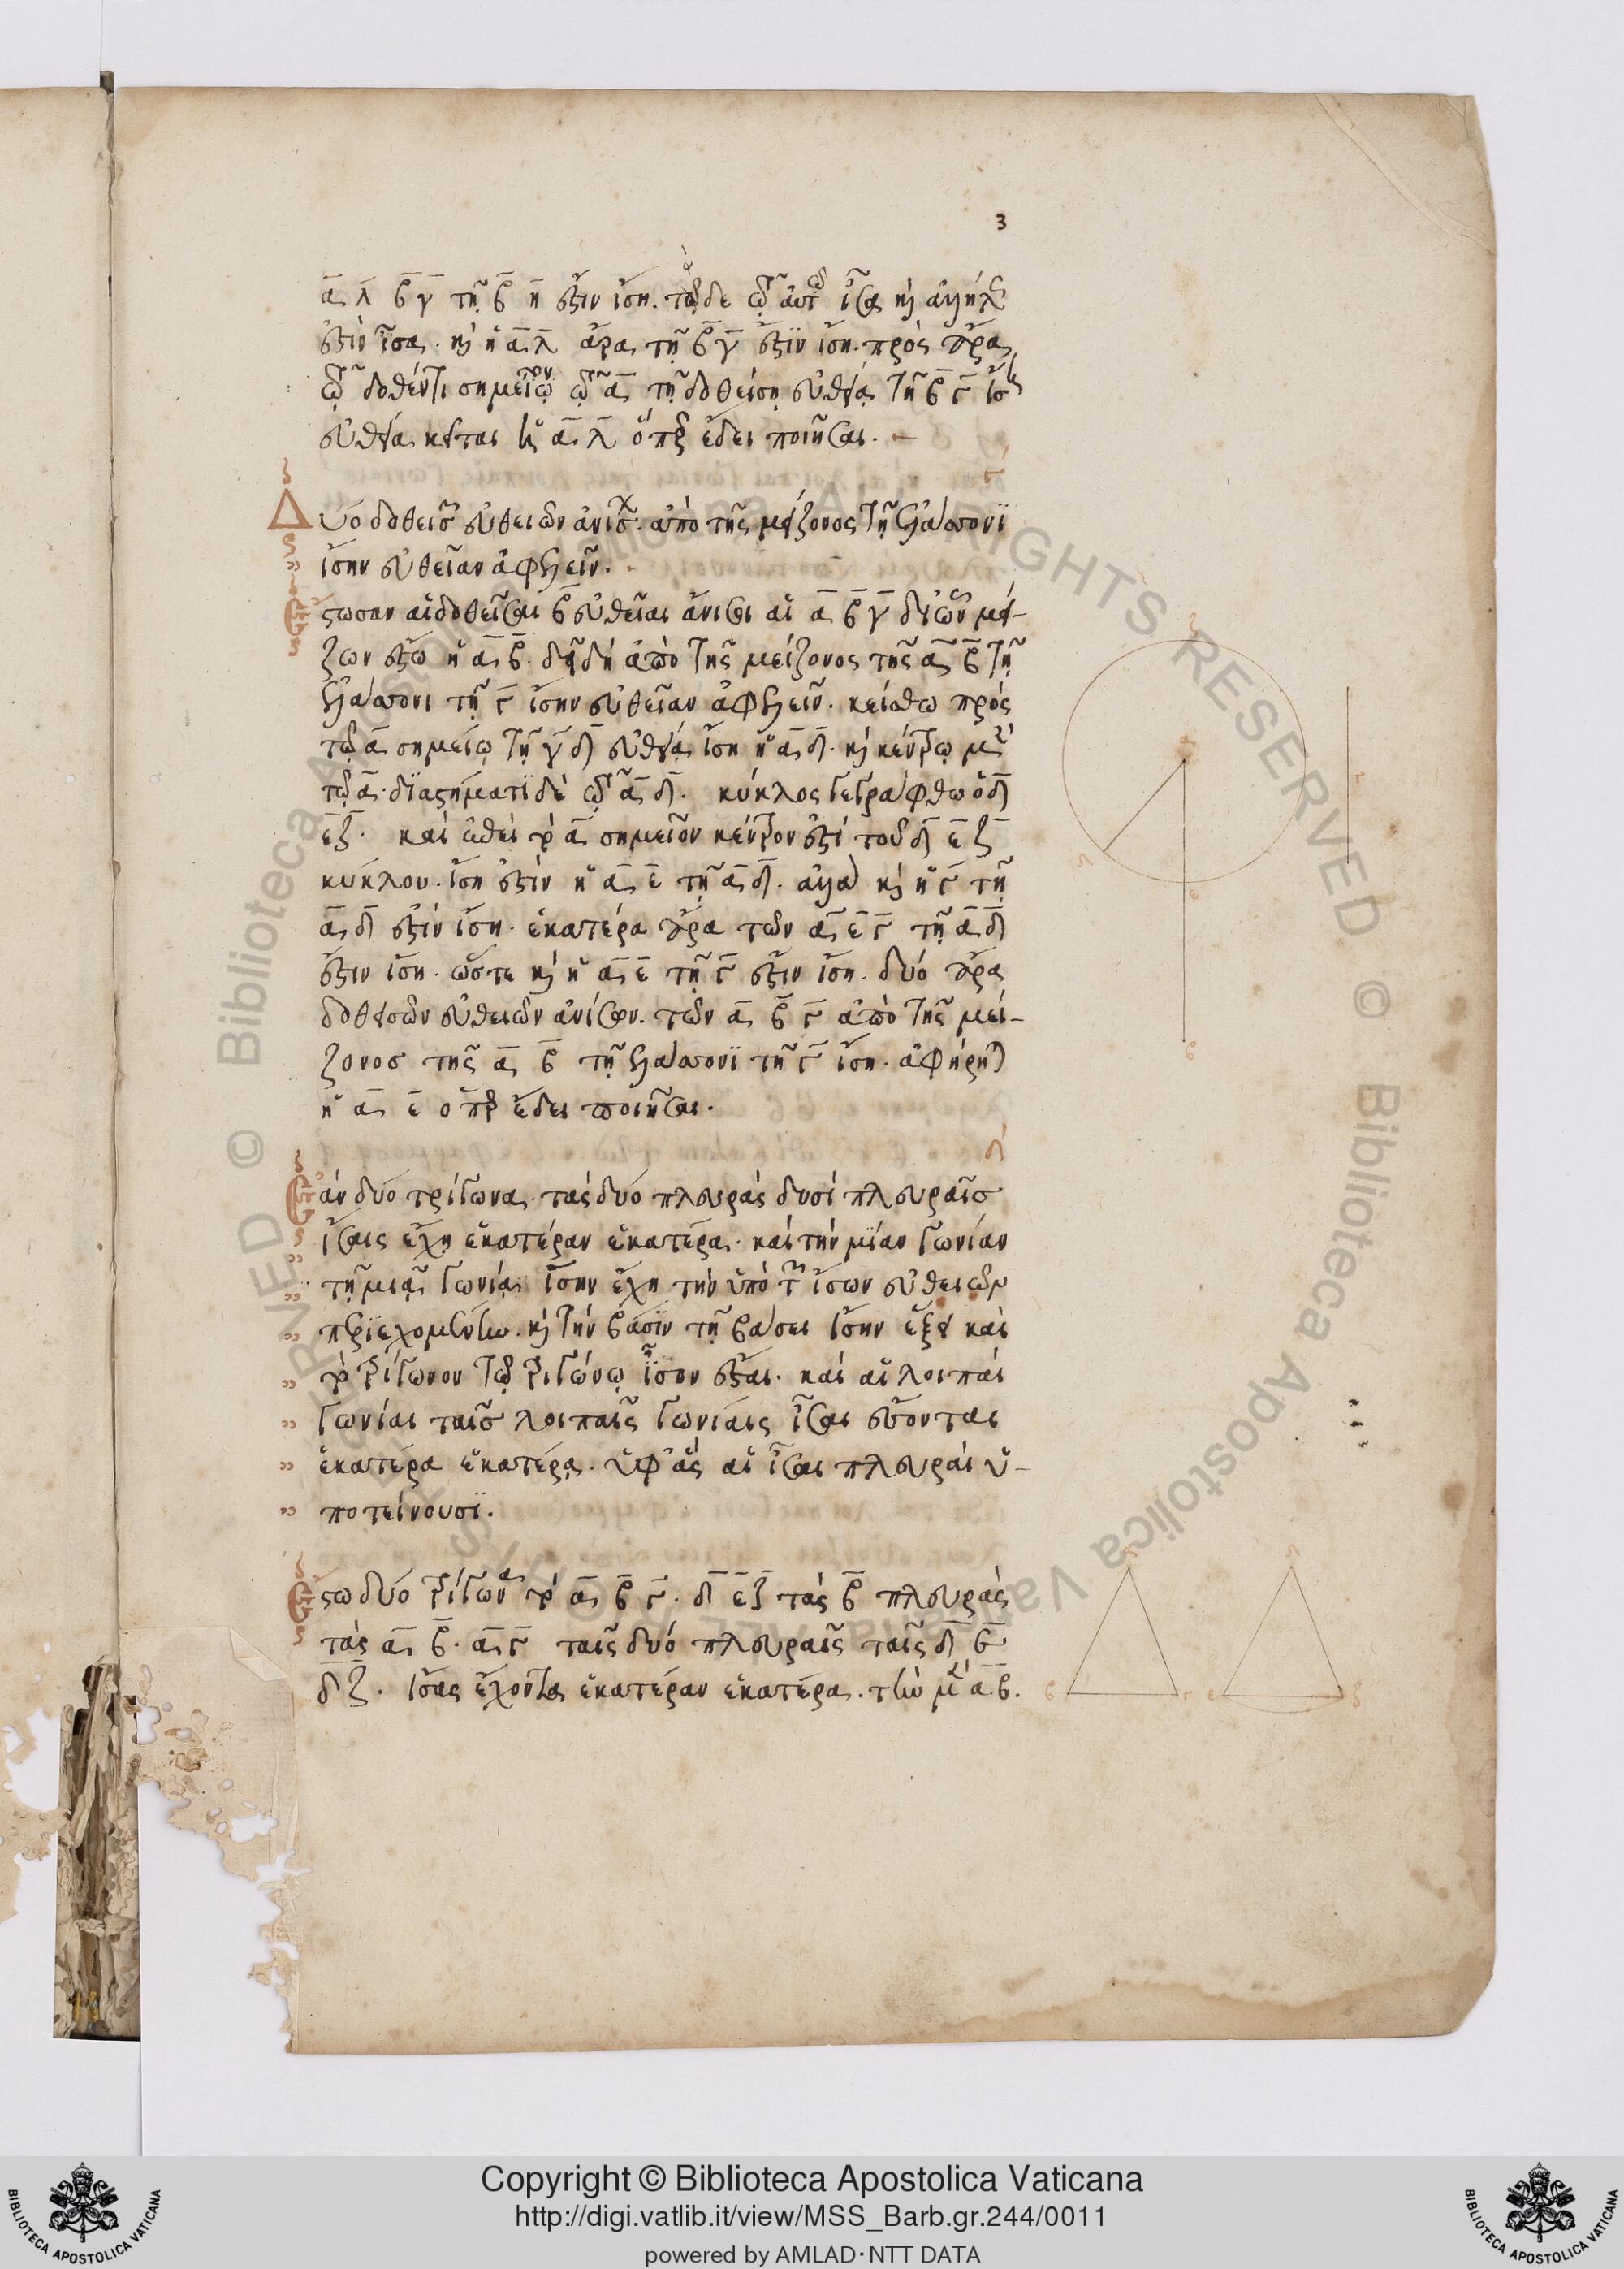 3
α λ β γ τῇ β η ἐστιν ἴση. τὰ δὲ τῷ αὐτῷ ἴσα κ̀ ἀλλήλοις
ἐστὶν ἴσα. κ̀ ἡ α λ ἄρα τῇ β γ ἐστὶν ἴση. πρὸς ἄρα
τῷ δοθέντι σημείῳ τῷ α τῇ δοθείσῃ εὐθείᾳ τῇ β γ ἴση
εὐθεῖα κεῖται ἡ α λ ὅπερ ἔδει ποιῆσαι.
γ
Δύο δοθεισῶν εὐθειῶν ἀνίσων. ἀπὸ τῆς μείζονος τῇ ἐλάσσονϊ
ἴσην εὐθεῖαν ἀφελεῖν.
Ἔστωσαν αἱ δοθεῖσαι β εὐθεῖαι ἄνισοι αἱ α β γ δι ὧν μεί-
ζων ἔστω ἡ α β. δεῖ δὴ ἀπὸ τῆς μείζονος τῆς α β τῇ
ἐλάσσονι τῇ γ ἴσην εὐθεῖαν ἀφελεῖν. κείσθω πρὸς
τῷ α σημείῳ τῇ γ δ εὐθείᾳ ἴση ἡ α δ. κ̀ κέντρῳ μὲν
τῷ α. διαστήματϊ δὲ τῷ α δ. κύκλος γεγράφθω ὁ δ
ε ζ. καὶ ἐπεὶ τὸ α σημεῖον κέντρον ἐστὶ τοῦ δ ε ζ
κύκλου. ἴση ἐστὶν ἡ α ε τῇ α δ. ἀλλὰ κ̀ ἡ γ τῇ
α δ ἐστὶν ἴση. ἑκατέρα ἄρα τῶν α ε γ τῇ α δ
ἐστιν ἴση. ὥστε κ̀ ἡ α ε τῇ γ ἐστιν ἴση. δύο ἄρα
δοθεισῶν εὐθειῶν ἀνίσων. τῶν α β γ ἀπὸ τῆς μεί-
ζονοσ τῆς α β τῇ ἐλάσσονϊ τῇ γ ἴση. ἀφήρηται
ἡ α ε ὅπερ ἔδει ποιῆσαι.
δ
Ἐὰν δύο τρίγωνα. τὰς δύο πλευρὰς δυσὶ πλευραῖσ
ἴσαις ἔχῃ ἑκατέραν ἑκατέρᾳ. καὶ τὴν μίαν γωνίαν
τῇ μιᾷ γωνίᾳ ἴσην ἔχῃ τὴν ὑπὸ τῶν ἴσων εὐθειῶν
περϊεχομένην. κ̀ τὴν βάσϊν τῇ βάσει ἴσην ἕξει καὶ
τὸ τρίγωνον τῷ τριγώνῳ ἴσον ἔσται. καὶ αἱ λοιπαὶ
γωνίαι ταῖσ λοιπαῖς γωνίαις ἴσαι ἔσονται
ἑκατέρα ἑκατέρᾳ. ὑφ' ἃς αἱ ἴσαι πλευραὶ ὑ-
ποτείνουσϊ.
Ἔστω δύο τρίγωνα τὰ α β γ. δ ε ζ τὰς β πλευρὰς
τὰς α β. α γ ταῖς δυὸ πλευραῖς ταῖς δ ε
δ ζ. ἴσας ἔχοντα ἑκατέραν ἑκατέρᾳ. τὴν μὲν α β.
Copyright © Biblioteca Apostolica Vaticana
http://digi.vatlib.it/view/MSS_Barb.gr.244/0011
powered by AMLAD·NTT DATA
BIBLIOTECA APOSTOLICA VATICANA
BIBLIOTECA APOSTOLICA VATICANA